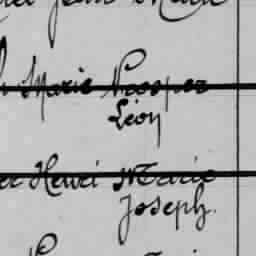 Jean Marie
Marie Prosper
Léon
Henri Marie
Joseph.